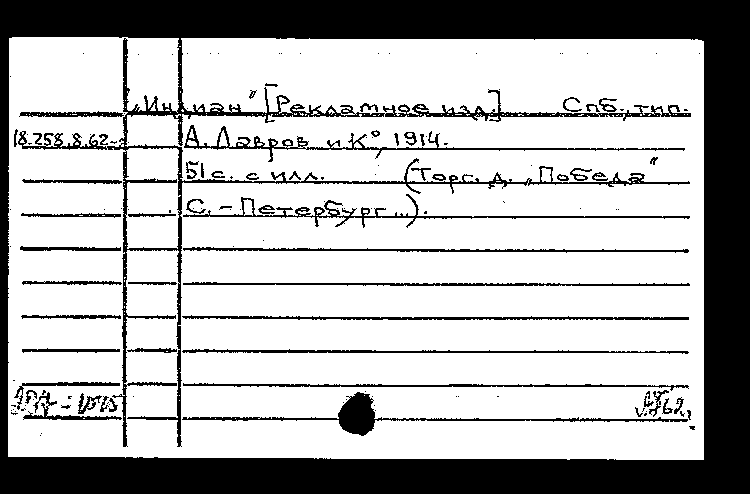 „Индиан" [Рекламное изд.] Спб., тип.
18.258.8.62
А. Лавров и К°, 1914.
51 с. с илл. (Торг. д. „Победа"
С.-Петербург...).